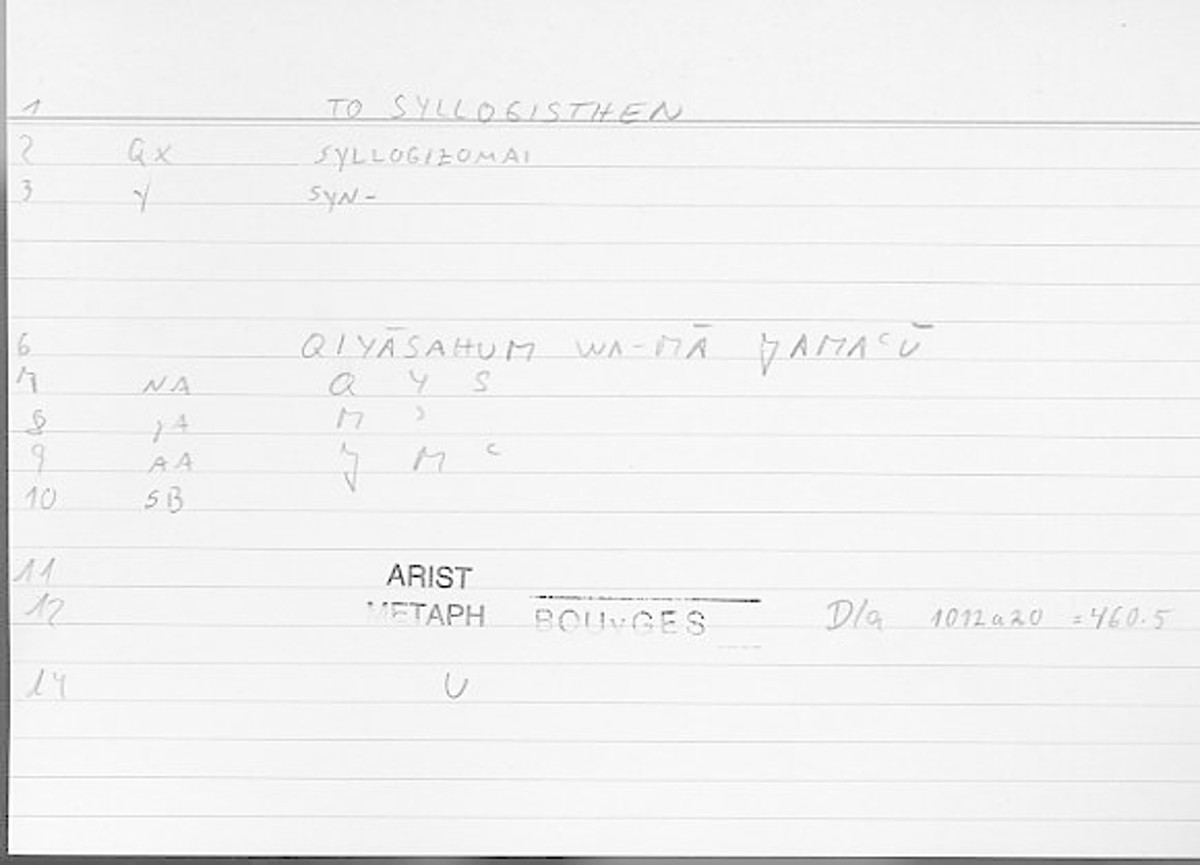 1 TO SYLLOGISTHEN
2 QX SYLLOGIZOMAI
3 Y SYN-
6 QIYĀSAHUM WA-MĀ ǦAMAʿŪ
7 NA Q Y S
8 M ʾ
9 AA Ǧ M ʿ
10 SB
11 ARIST
12 METAPH BOUYGES D/a 1012a20 =460.5
14 U